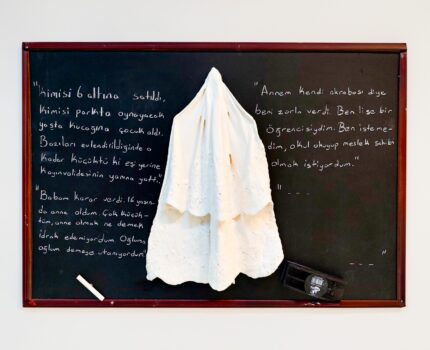 "Kimisi 6 altına satıldı,
kimisi parkta oynayacak
yaşta kucağına çocuk aldı.
Bazıları evlendirildiğinde o
kadar küçüktü ki eşi yerine
kayınvalidesinin yanına yattı."
"Babam karar verdi. 16 yaşın-
da anne oldum. Çok küçük-
tüm, anne olmak ne demek
idrak edemiyordum. Oğluma
oğlum demeye utanıyordum."
"Annem kendi akrabası diye
beni zorla verdi. Ben lise bir
öğrencisiydim. Ben isteme-
dim, okul okuyup meslek sahibi
olmak istiyordum."
"- - -
- - - "